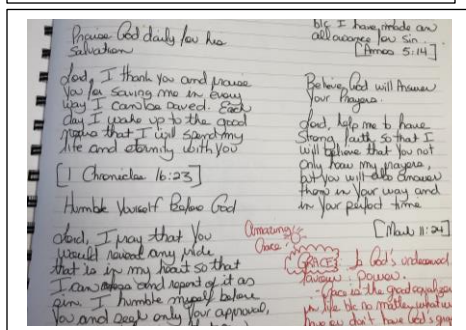 Praise God daily for his
Salvation
Lord, I thank you and praise
you for saving me in every
way I can be saved. Each
day I wake up to the good
news that I will spend my
life and eternity with you
[1 Chronicles 16:23]
Humble Yourself Before God
Lord, I pray that You
would reveal any pride
that is in my heart so that
I can and repent of it as
sin. I humble myself before
You and seek only Your approval,
b/c I have made an
allowance for sin.
[Amos 5:14]
Believe God will Answer
Your Prayers.
Lord, help me to have
Strong faith so that I
will believe that you not
only hear my prayers,
but you will also answer
them in Your way and
in Your perfect time
[Mark 11:24]
Amazing
Grace
GRACE is God's undeserved
favour power.
Grace is the good
in life b/c no matter what
you don't have God's